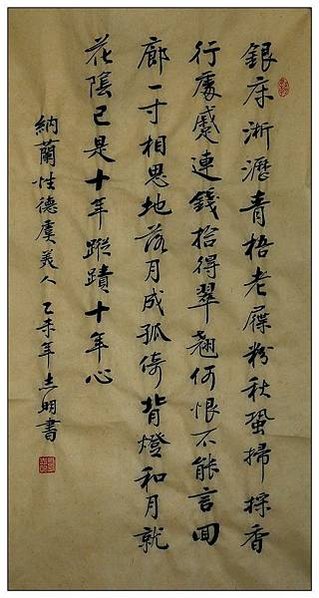 銀床淅瀝青梧老屧粉秋蛩掃採香
行處蹙連錢拾得翠翹何恨不能言回
廊一寸相思地落月成孤倚背燈和月就
花陰已是十年蹤蹟十年心
納蘭性德虞美人 乙未年志明書